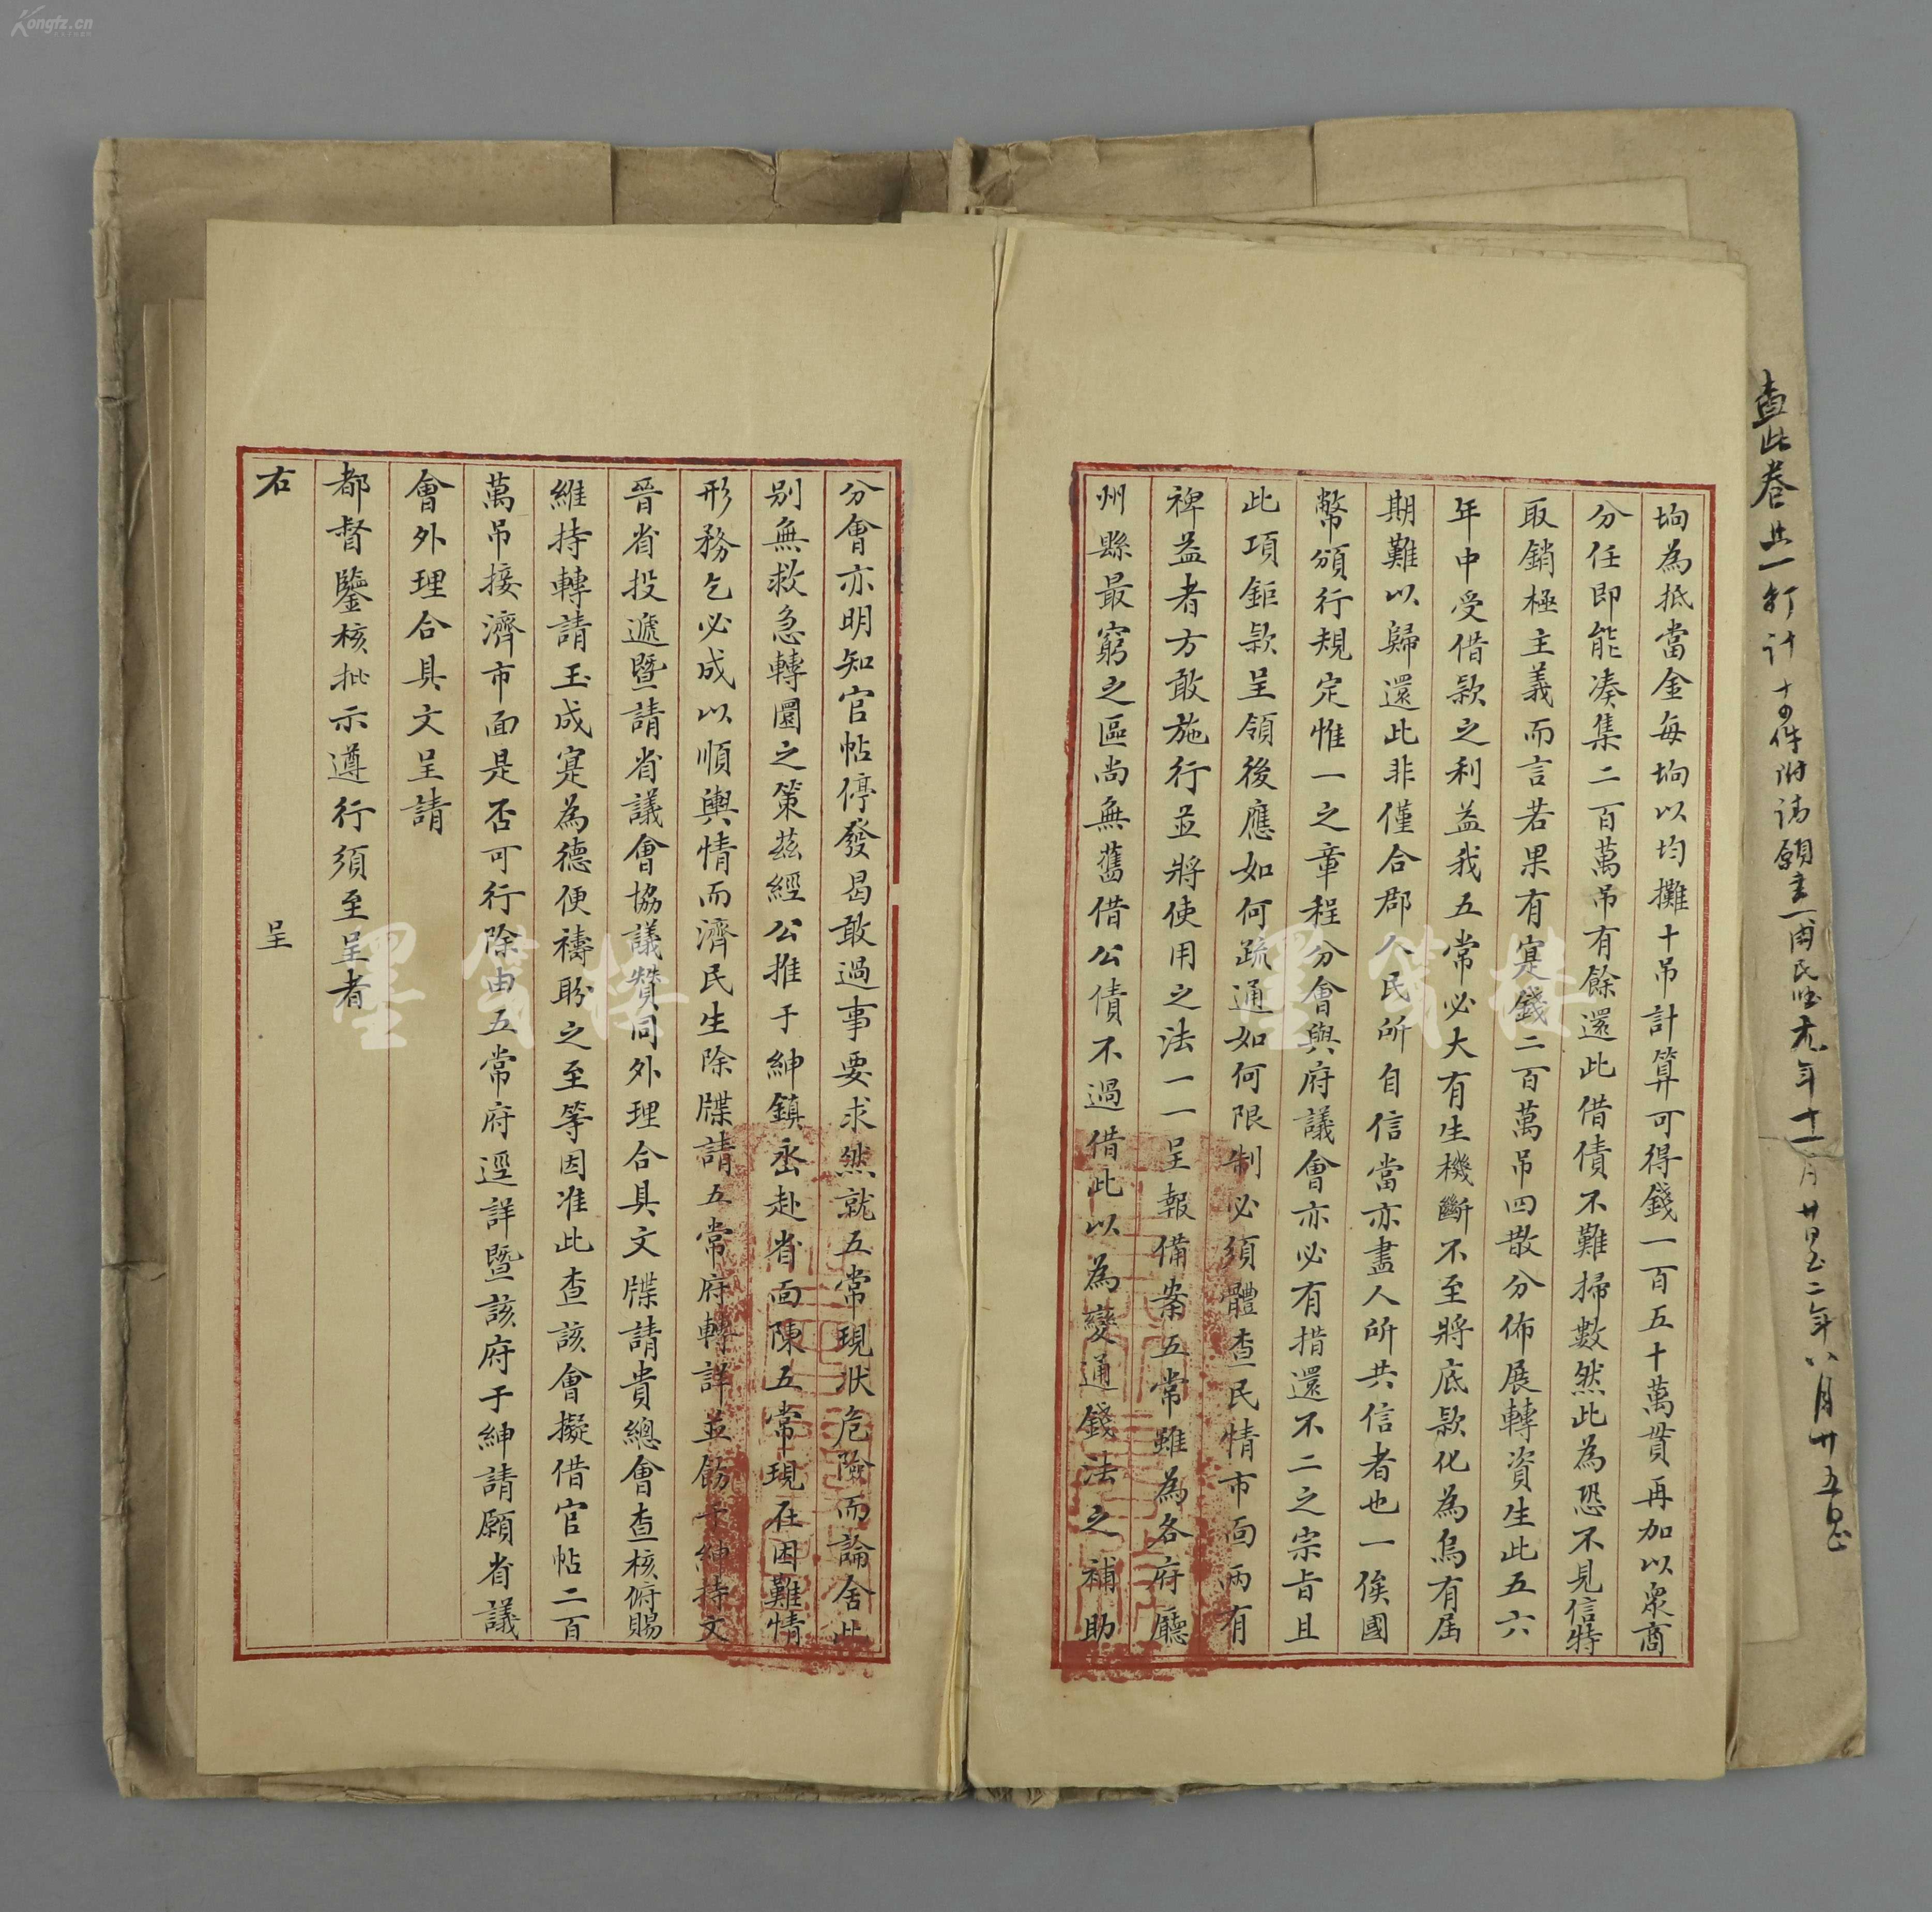 Kongfz.cn
查此卷共一打計十四件附請願書一周民國元年十一月廿四日至二年八月廿五日
垧為抵當金每垧以均攤十吊計算可得錢一百五十萬貫再加以眾商
分任即能凑集二百萬吊有餘還此借債不難掃數然此為恐不見信特
取銷極主義而言若果有寔錢二百萬吊四散分佈展轉資生此五六
年中受借款之利益我五常必大有生機斷不至將底款化為烏有屆
期難以歸還此非僅合郡人民所自信當亦盡人所共信者也一俟國
幣頒行規定惟一之章程分會與府議會亦必有措還不二之宗旨且
此項鉅款呈領後應如何疏通如何限制必須體查民情市面兩有
裨益者方敢施行並將使用之法一一呈報備案五常雖為各府廳
州縣最窮之區尚無舊借公債不過借此以為變通錢法之補助
分會亦明知官帖停發曷敢過事要求然就五常現狀危險而論舍此
別無救急轉圜之策茲經公推于紳鎮丞赴省面陳五常現在困難情
形務乞必成以順輿情而濟民生除牒請五常府轉詳並飭于紳持文
晉省投遞暨請省議會協議贊同外理合具文牒請貴總會查核俯賜
維持轉請玉成寔為德便禱盼之至等因准此查該會擬借官帖二百
萬吊接濟市面是否可行除由五常府逕詳暨該府于紳請願省議
會外理合具文呈請
都督鑒核批示遵行須至呈者
右　呈
墨笺楼
墨笺楼